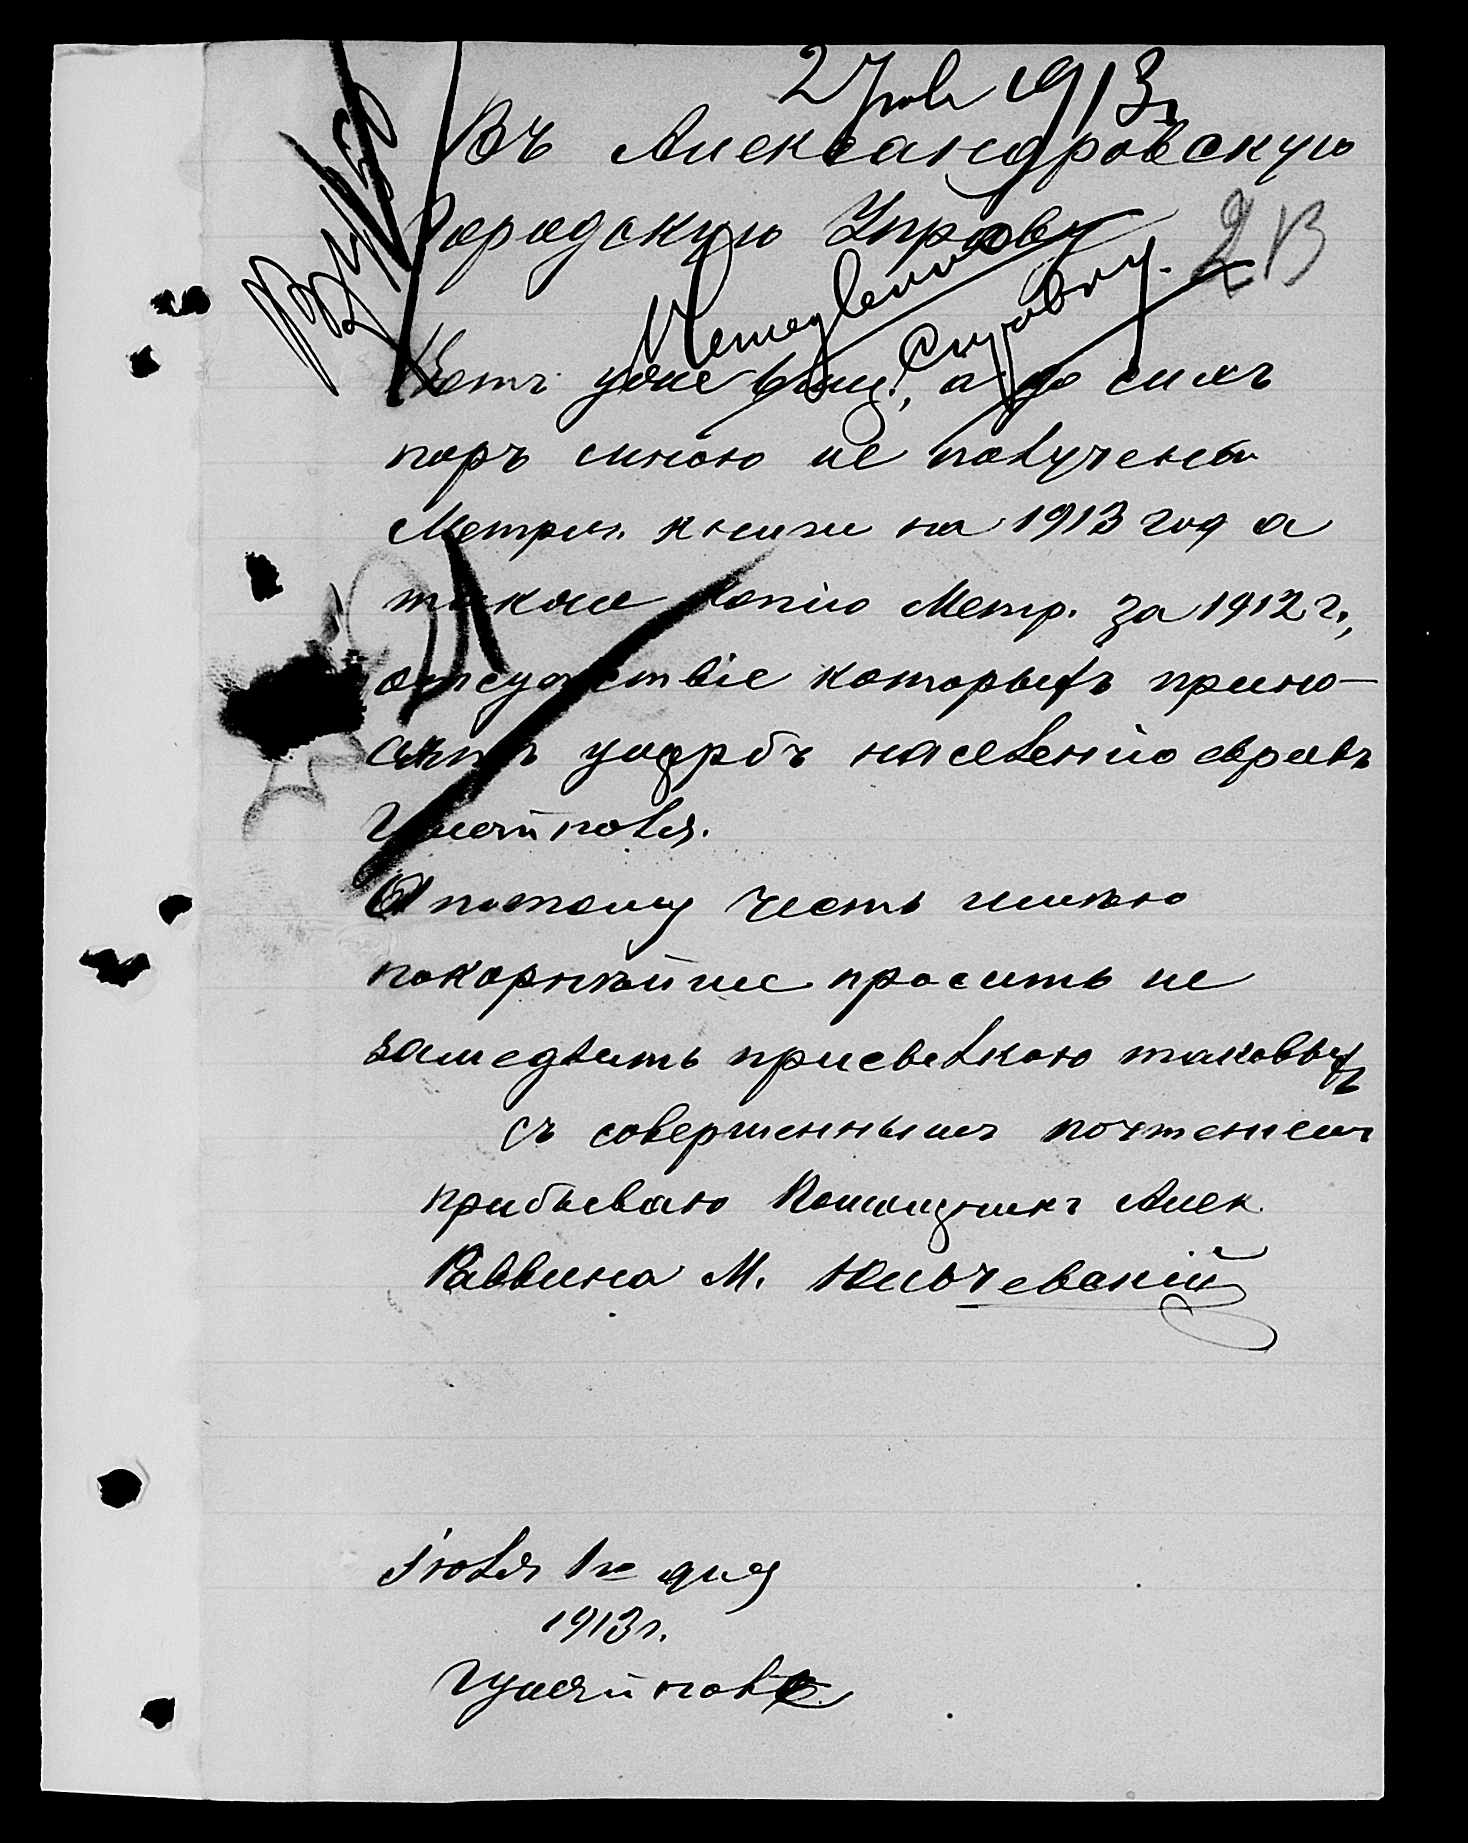 2 Июля 1913 г.
Въ Александровскую
Городскую Управу
28
Немедленно
Справку.
Вотъ уже 6 мц., а до сихъ
поръ мною не получены
Метрич. книги на 1913 год а
также копію Метр. за 1912 г.,
отсутствіе которыхъ прино-
ситъ ущербъ населенію евреевъ
Гуляйполя.
А потому честь имѣю
покорнѣйше просить не
замедлить присылкою таковыхъ
съ совершеннымъ почтеніемъ
прибываю Помощникъ Алек.
Раввина М. Кильчевскій
Іюля 1го дня
1913 г.
Гуляйполе